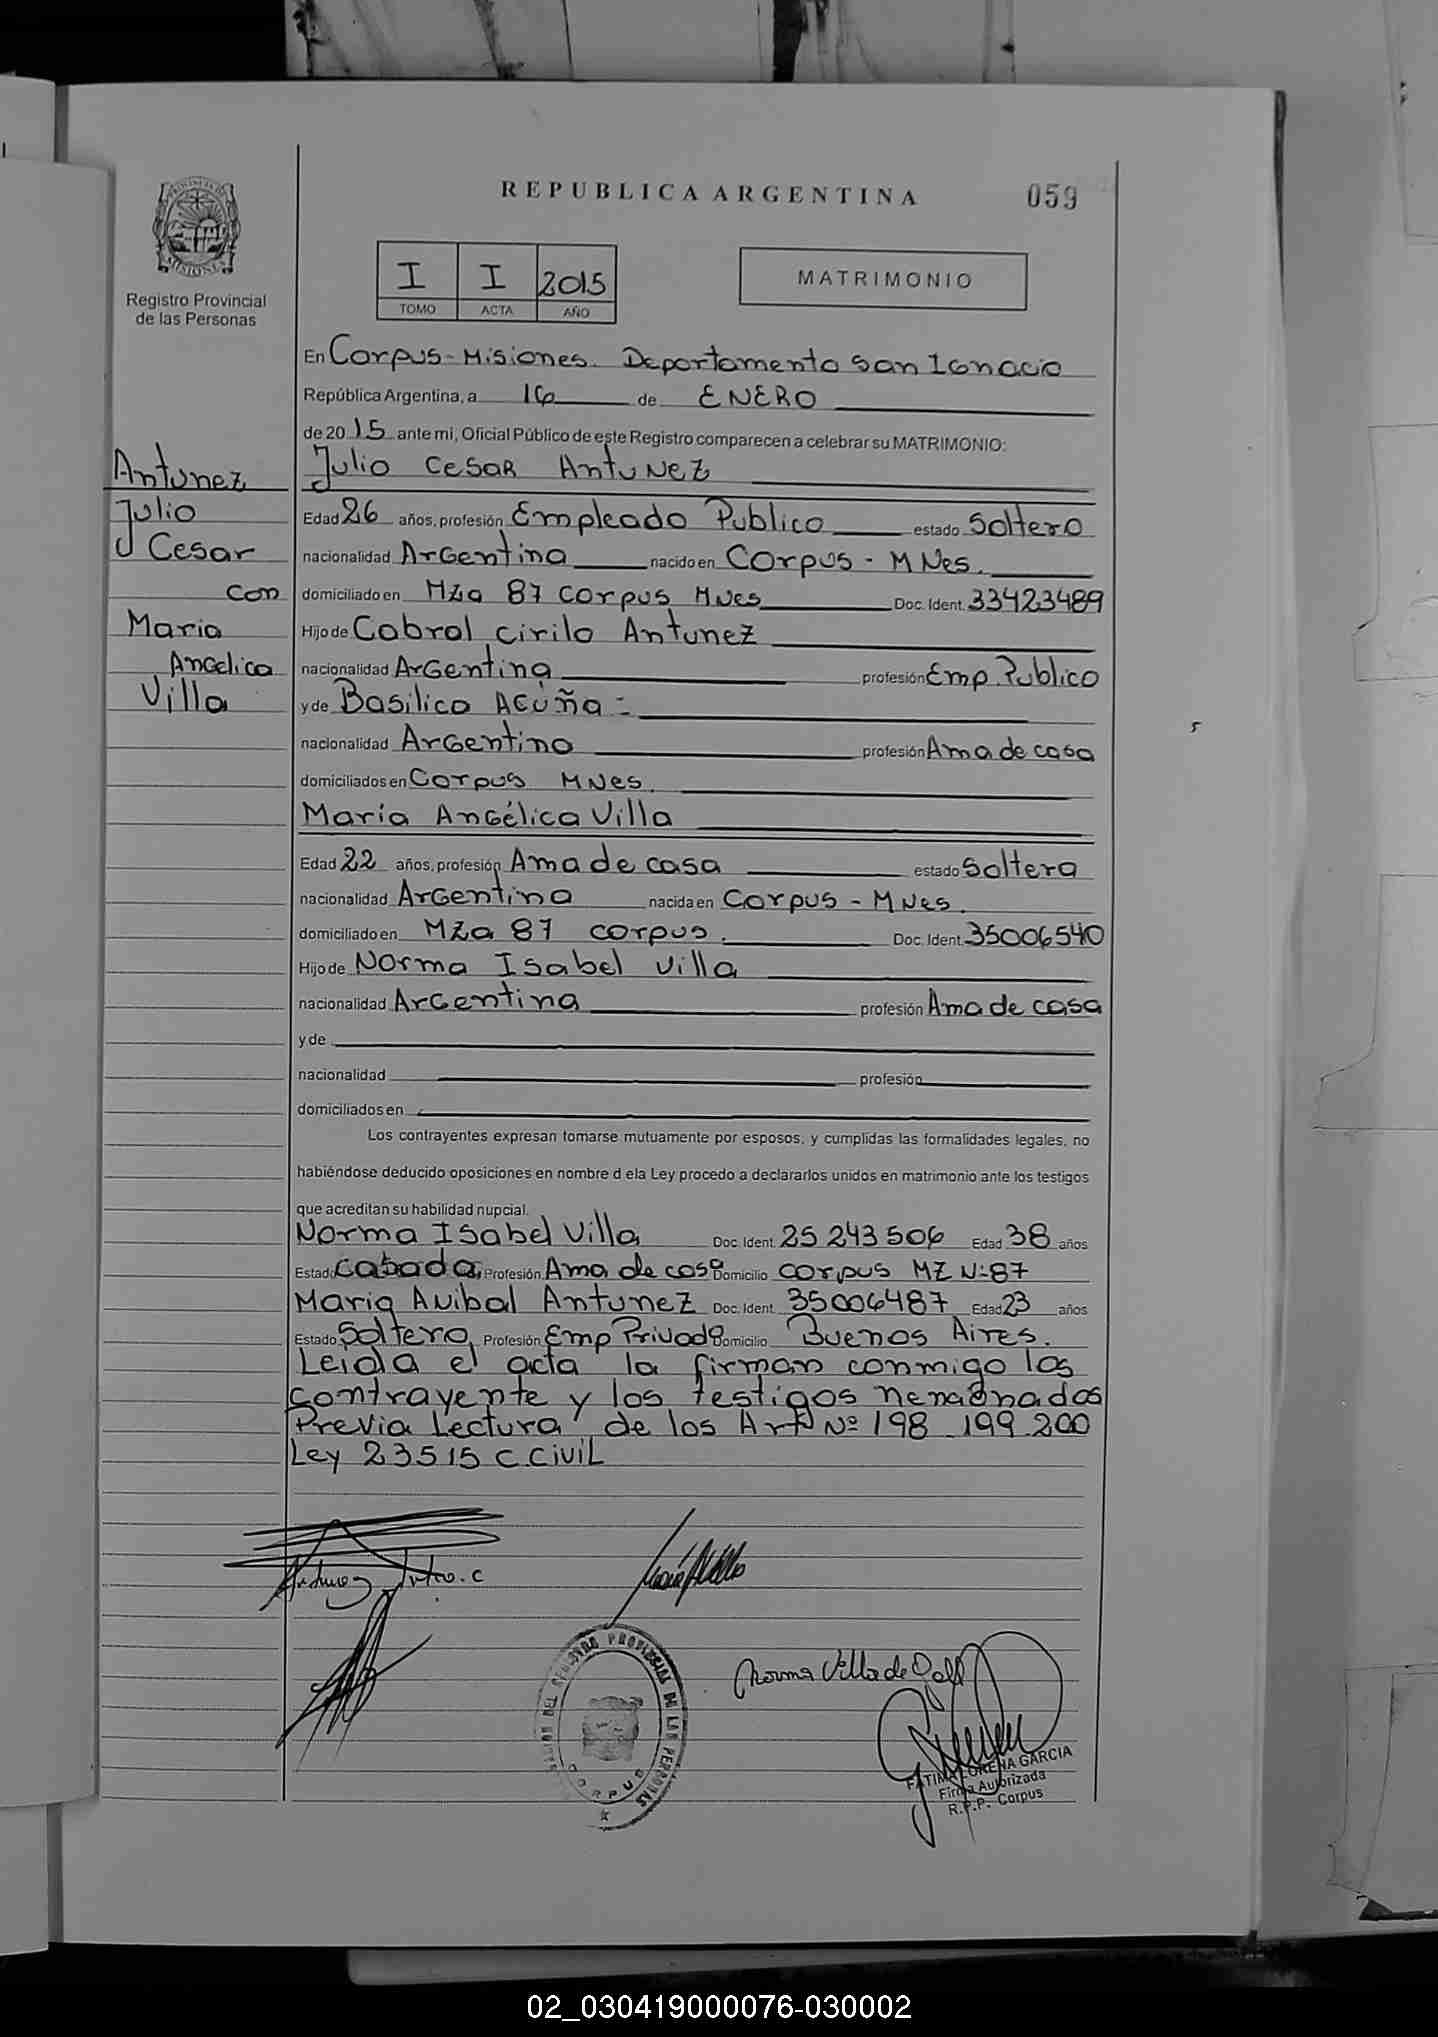 REPUBLICA ARGENTINA
059
PROVINCIA DE
MISIONES
Registro Provincial
de las Personas
I I 2015
TOMO ACTA AÑO
MATRIMONIO
En Corpus - Misiones. Departamento San Ignacio
República Argentina, a 16 de ENERO
de 2015 ante mi, Oficial Público de este Registro comparecen a celebrar su MATRIMONIO:
Antunez
Julio
Cesar
con
Maria
Angelica
Villa
Julio Cesar Antunez
Edad 26 años, profesión Empleado Publico estado Soltero
nacionalidad Argentina nacido en Corpus - MNes.
domiciliado en Mza 87 corpus Mnes Doc. Ident. 33423489
Hijo de Cabral cirilo Antunez
nacionalidad Argentina profesión Emp. Publico
y de Basilica Acuña =
nacionalidad Argentina profesión Ama de casa
domiciliados en Corpus MNes.
María Angélica Villa
Edad 22 años, profesión Ama de casa estado Soltera
nacionalidad Argentina nacida en Corpus - MNes.
domiciliado en Mza 87 corpus. Doc. Ident. 35006540
Hijo de Norma Isabel Villa
nacionalidad Argentina profesión Ama de casa
y de
nacionalidad profesión
domiciliados en
Los contrayentes expresan tomarse mutuamente por esposos, y cumplidas las formalidades legales, no
habiéndose deducido oposiciones en nombre d ela Ley procedo a declararlos unidos en matrimonio ante los testigos
que acreditan su habilidad nupcial.
Norma Isabel Villa Doc. Ident. 25 243 506 Edad 38 años
Estado casada Profesión Ama de casa Domicilio corpus MZ N:87
Mario Anibal Antunez Doc. Ident. 35006487 Edad 23 años
Estado Soltero Profesión Emp Privado Domicilio Buenos Aires.
Leida el acta la firman conmigo los
contrayente y los testigos
Previa Lectura de los Art Nº 198 199.200
Ley 23515 C.Civil
Antunez Julio.c
María A Villa
Norma Villa de
DEL REGISTRO PROVINCIAL DE LAS PERSONAS
CORPUS
FATIMA LORENA GARCIA
Firma Autorizada
R.P.P. Corpus
02_030419000076-030002